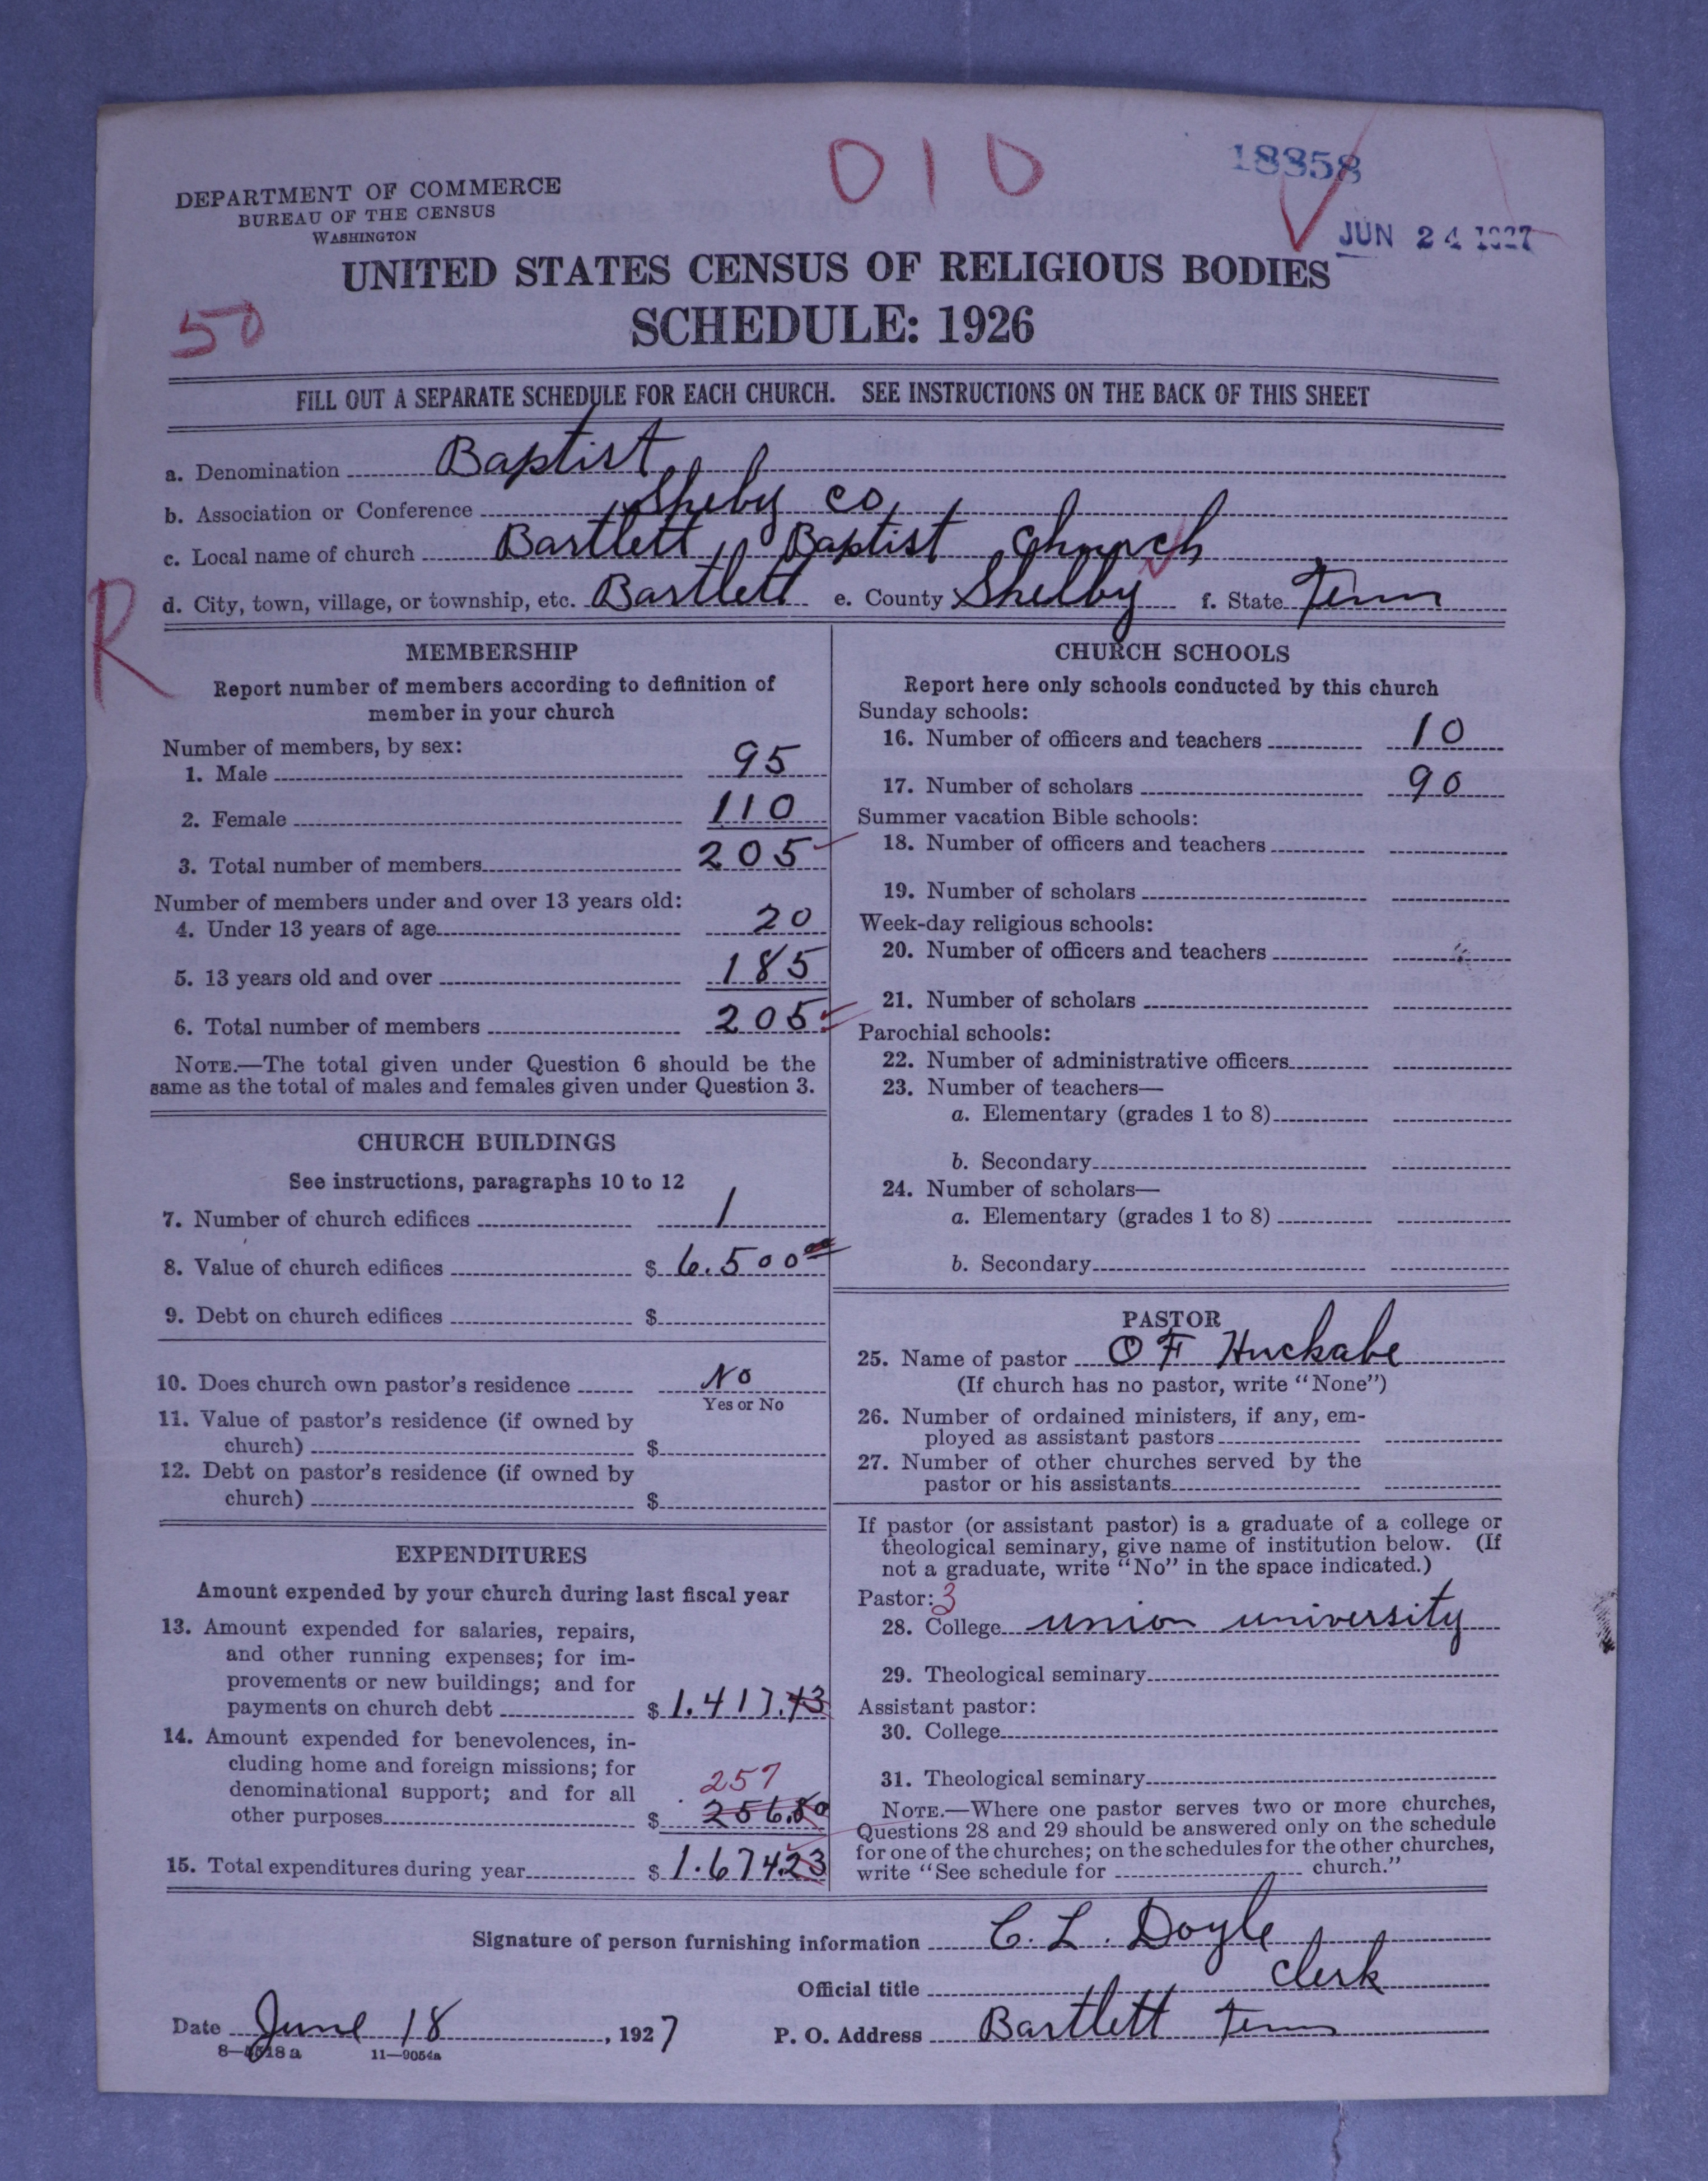 010
18358
DEPARTMENT OF COMMERCE
BUREAU OF THE CENSUS
WASHINGTON
JUN 24 1927
UNITED STATES CENSUS OF RELIGIOUS BODIES
SCHEDULE: 1926
50
FILL OUT A SEPARATE SCHEDULE FOR EACH CHURCH. SEE INSTRUCTIONS ON THE BACK OF THIS SHEET
a. Denomination Baptist
b. Association or Conference Shelby Co,
c. Local name of church Bartlett Baptist Church
d. City, town, village, or township, etc. Bartlett e. County Shelby f. State Tenn
R
MEMBERSHIP
Report number of members according to definition of
member in your church
Number of members, by sex:
1. Male 95
2. Female 110
3. Total number of members 205
Number of members under and over 13 years old:
4. Under 13 years of age 20
5. 13 years old and over 185
6. Total number of members 205
NOTE.—The total given under Question 6 should be the
same as the total of males and females given under Question 3.
CHURCH BUILDINGS
See instructions, paragraphs 10 to 12
7. Number of church edifices 1
8. Value of church edifices $ 6.500 00
9. Debt on church edifices $
10. Does church own pastor's residence No
Yes or No
11. Value of pastor's residence (if owned by
church) $
12. Debt on pastor's residence (if owned by
church) $
EXPENDITURES
Amount expended by your church during last fiscal year
13. Amount expended for salaries, repairs,
and other running expenses; for im-
provements or new buildings; and for
payments on church debt $ 1.417.43
14. Amount expended for benevolences, in-
cluding home and foreign missions; for
denominational support; and for all 257
other purposes $ 256.80
15. Total expenditures during year $ 1.674.23
CHURCH SCHOOLS
Report here only schools conducted by this church
Sunday schools:
16. Number of officers and teachers 10
17. Number of scholars 90
Summer vacation Bible schools:
18. Number of officers and teachers
19. Number of scholars
Week-day religious schools:
20. Number of officers and teachers
21. Number of scholars
Parochial schools:
22. Number of administrative officers
23. Number of teachers—
a. Elementary (grades 1 to 8)
b. Secondary
24. Number of scholars—
a. Elementary (grades 1 to 8)
b. Secondary
PASTOR
25. Name of pastor O F Huckabe
(If church has no pastor, write "None")
26. Number of ordained ministers, if any, em-
ployed as assistant pastors
27. Number of other churches served by the
pastor or his assistants
If pastor (or assistant pastor) is a graduate of a college or
theological seminary, give name of institution below. (If
not a graduate, write "No" in the space indicated.)
Pastor: 3
28. College union university
29. Theological seminary
Assistant pastor:
30. College
31. Theological seminary
NOTE.—Where one pastor serves two or more churches,
Questions 28 and 29 should be answered only on the schedule
for one of the churches; on the schedules for the other churches,
write "See schedule for church."
Signature of person furnishing information C. L. Doyle
Official title clerk
Date June 18, 1927 P. O. Address Bartlett Tenn
11—9054a